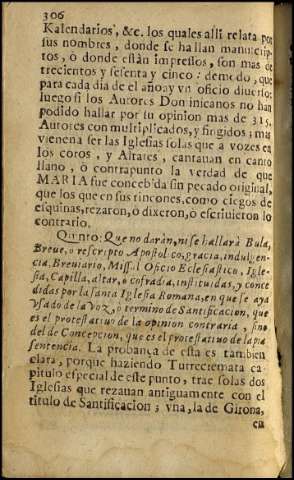 306
Kalendarios, &c. los quales alli relata por
sus nombres, donde se hallan manuscrip-
tos, ò donde estàn impressos, son mas de
trecientos y sesenta y cinco: de modo, que
para cada dia de el año ay vn oficio diuerso;
luego si los Autores Dominicanos no han
podido hallar por su opinion mas de 315.
Autores con multiplicados, y fingidos; mas
vienen à ser las Iglesias solas que a vozes en
los coros, y Altares, cantauan en canto
llano, ò contrapunto la verdad de que
MARIA fue concebida sin pecado original,
que los que en sus rincones, como ciegos de
esquinas, rezaron, ò dixeron, ò escriuieron lo
contrario.
Quinto: Que no daràn, ni se hallarà Bula,
Breue, ò rescripto Apostolico, gracia, indulgen-
cia, Breuiario, Missal, Oficio Eclesiastico, Igle-
sia, Capilla, altar, ò cofradia, instituidas, y conce
didas por la santa Iglesia Romana, en que se aya
vsado de la voz, ò termino de Santificacion, que
es el protestatiuo de la opinion contraria, sino
del de Concepcion, que es el protestatiuo de la pia
sentencia. La probança de esta es tambien
clara, porque haziendo Turrecremata ca-
pitulo especial de este punto, trae solas dos
Iglesias que rezauan antiguamente con el
titulo de Santificacion; vna, la de Girona,
en